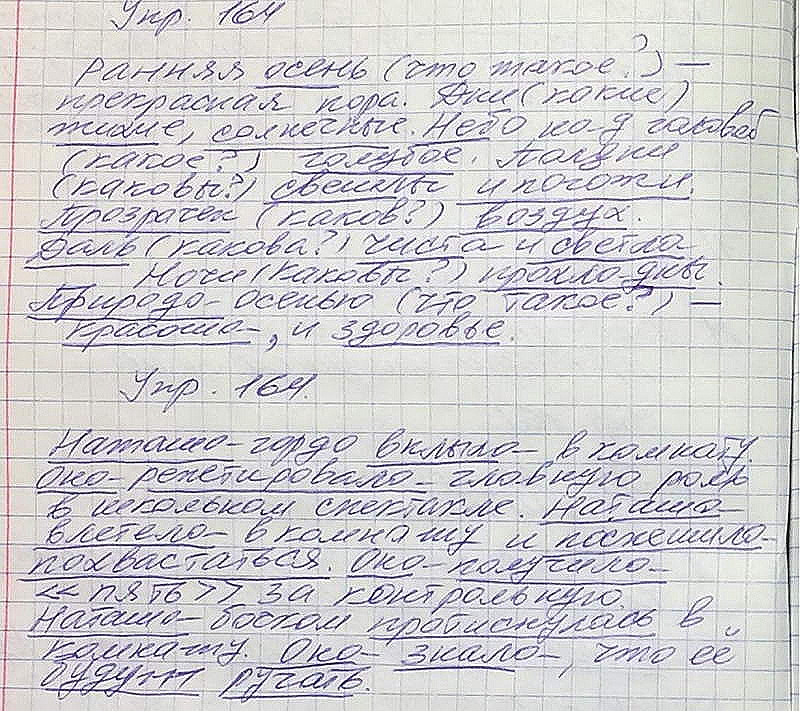 Упр. 164
Ранняя осень (что такое?) —
прекрасная пора. Дни (какие)
тихие, солнечные. Небо над головой
(какое?) голубое. Полдни
(каковы?) светлы и погожи.
Прозрачен (каков?) воздух.
Даль (какова?) чиста и светла
Ночи (каковы?) прохладны.
Природа осенью (что такое?) —
красота, и здоровье.
Упр. 164.
Наташа гордо вплыла в комнату.
Она репетировала главную роль
в школьном спектакле. Наташа
влетела в комнату и поспешила
похвастаться. Она получила
<<пять>> за контрольную.
Наташа бочком протиснулась в
комнату. Она знала, что её
будут ругать.